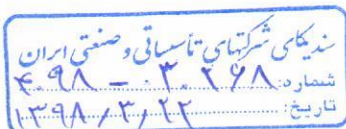 سندیکای شرکتهای تأسیساتی و صنعتی ایران
شماره: ۴۰۹۸ - ۰۳۰۲۶۸
تاریخ: ۱۳۹۸/۳/۲۲